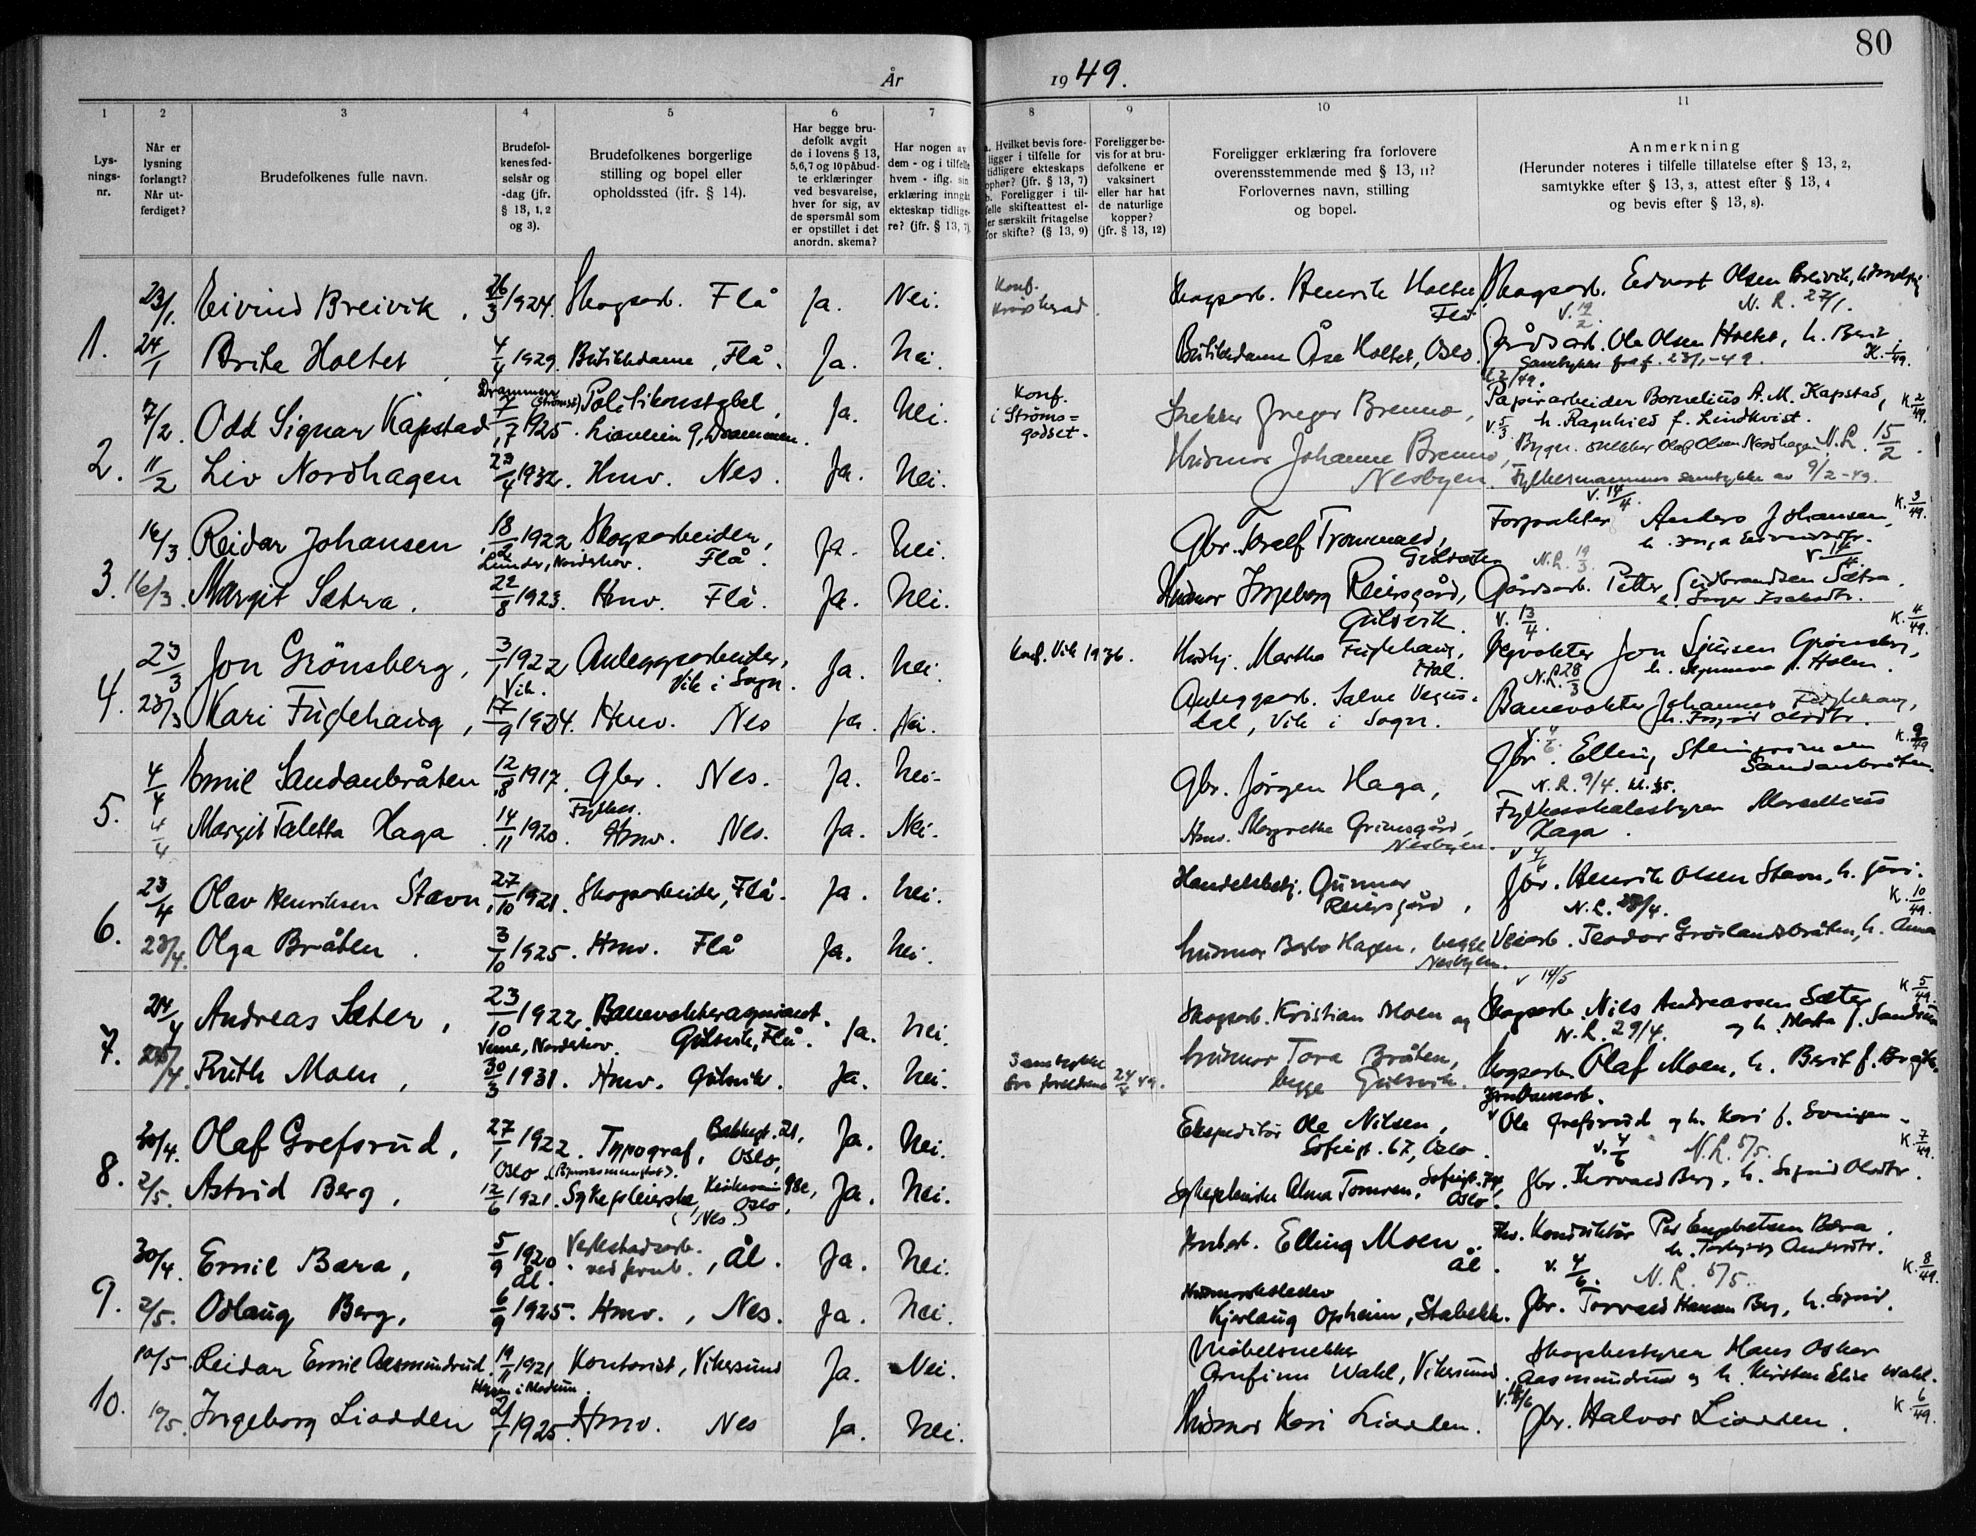 80
År
1949.
1
2
3
4
5
6
7
8
9
10
11
Lysnings-nr.
Når er lysning forlangt? Når utferdiget?
Brudefolkenes fulle navn.
Brudefolkenes fødselsår og -dag (jfr. § 13, 1, 2 og 3).
Brudefolkenes borgerlige stilling og bopel eller opholdssted (ifr. § 14).
Har begge brudefolk avgit de i lovens § 13, 5,6,7 og 10 påbudte erklæringer ved besvarelse, hver for sig, av de spørsmål som er opstillet i det anordn. skema?
Har nogen av dem - og i tilfelle hvem - iflg. sin erklæring inngåt ekteskap tidligere? (jfr. § 13, 7).
a. Hvilket bevis foreligger i tilfelle for tidligere ekteskaps ophør? (jfr. § 13, 7) b. Foreligger i tilfelle skifteattest eller særskilt fritagelse for skifte? (§ 13, 9)
Foreligger bevis for at brudefolkene er vaksinert eller har hat de naturlige kopper? (jfr. § 13, 12)
Foreligger erklæring fra forlovere overensstemmende med § 13, 11? Forlovernes navn, stilling og bopel.
Anmerkning (Herunder noteres i tilfelle tillatelse efter § 13, 2, samtykke efter § 13, 3, attest efter § 13, 4 og bevis efter § 13, 8).
23/1. Eivind Breivik. 26/3 1924. Skogsarb. Flå Ja. Nei. Konf. Krødsherad. Skogsarb. Henrik Holtet Flå Skogsarb. Edvart Olsen Breivik,
V. 19/2. N.L. 27/1.
1. 24/1 Brita Holtet 4/4 1929. Butikkdame, Flå. Ja. Nei. Butikkdame Åse Holtet, Oslo. Gårdsarb. Ole Olsen Holtet, h. Berit K. 1/49.
Samtykke fra f. 23/1-49.
7/2. Odd Signar Kapstad Drammen (Strømsø) 7/7 1925. Politikonstabel, Liaveien 9, Drammen. Ja. Nei. Konf. i Strømsgodset. Snekker Gregor Brenno, Papirarbeider Bornelius A. M. Kapstad, h. Ragnhild f. Lindkvist. K. 2/49.
V. 5/3
2. 11/2 Liv Nordhagen 23/4 1932. Hmv. Nes. Ja. Nei. Husmor Johanne Brenno, Nesbyen. Bygn. snekker Olaf Olsen Nordhagen N.L. 15/2.
Fylkesmannens samtykke av 9/2-49.
V. 14/4
16/3. Reidar Johansen 18/2 1922 Lunder, Norderhov. Skogsarbeider, Flå. Ja. Nei. Gbr. Torolf Trommald, Gulsvik Forpakter Anders Johansen, K. 3/49.
N.L. 19/3.
3. 16/3. Margit Sætra. 22/8 1923. Hmv. Flå. Ja. Nei. Husmor Ingeborg Reiersgård, Gulsvik. Gårdsarb. Petter Gudbrandsen Sætra.
V. 13/4. K. 4/49.
23/3 Jon Grönsberg, 3/1 1922 Vik. Anleggsarbeider, Vik i Sogn. Ja. Nei. Konf. Vik 1936. Husbj. Martha Fuglehaug, Hol. Veivokter Jon Sjursen Grønsberg,
N.L. 28/3
4. 23/3 Kari Fuglehaug, 17/9 1924. Hmv. Nes Ja. Nei. Anleggsarb. Salve Vegusdal, Vik i Sogn. Banevokter Johannes Fuglehaug,
V. 4/6. K. 9/49
4/4 Emil Sandanbråten 12/8 1917. Gbr. Nes. Ja. Nei. Gbr. Jørgen Haga, Gbr. Elling Steingrimsen Sandanbråten.
N.L. 9/4.
5. 4/4 Margit Taletta Haga 14/11 1920. Hmv. Nes. Ja. Nei. Hmv. Margrethe Grimsgård, Nesbyen. Fylkesskattestyrer Marsellius Haga.
V 4/6
23/4 Olav Henriksen Stavn, 27/10 1921. Skogsarbeider, Flå. Ja. Nei. Handelsbetj. Gunnar Reiersgård, Gbr. Henrik Olsen Stavn, h. Guri.
N.L. 28/4. K. 10/49.
6. 23/4. Olga Bråten. 3/10 1925. Hmv. Flå Ja. Nei. Husmor Berbo Hagen, begge Nesbyen. Veiarb. Teodor Grøslandsbråten, h. Anna
V 14/5
24/4 Andreas Sæter, 23/10 1922. Veme, Norderhov. Banevokteraspirant. Gulsvik, Flå. Ja. Nei. Skogsarb. Kristian Moen og Skogsarb. Nils Andreassen Sæter og h. Marta f. Sandum K. 5/49.
N.L. 29/4.
7. 25/4 Ruth Moen, 30/3 1931. Hmv. Gulsvik. Ja. Nei. Samtykke fra foreldrene 24/4 49. husmor Tora Bråten, begge Gulsvik. Skogsarb. Olaf Moen, h. Berit f. Bråten
30/4. Olaf Grefsrud, 27/1 1922. Oslo Typograf, Bakkegt. 21, Oslo, Ja. Nei. Ekspeditør Ole Nilsen, Sofiegt. 67, Oslo. Jernbanearb. Ole Grefsrud og h. Kari f. Svingen.
V. 4/6 N.L. 5/5. K. 7/49.
8. 2/5. Astrid Berg, 12/6 1921. Sykepleierske, Kirkeveien 98c, Oslo, (Nes.) Ja. Nei. Sykepleierske Alma Tomren, Sofiegt. Oslo. Gbr. Thorvald Berg, h. Sigrid Olsdtr.
30/4. Emil Bæra, 5/9 1920 Ål. Verkstadsarb. ved jernb., Ål. Ja. Nei. Jernb.arb. Elling Moen. Ål. Konduktør Per Engebretsen Bæra, h. Torbjørg Andersdtr.
V. 4/6. N.L. 5/5. K. 8/49.
9. 2/5. Oslaug Berg, 6/9 1925. Hmv., Nes. Ja. Nei. Kjerlaug Opheim, Stabekk. Gbr. Torvald Hansen Berg, h. Sigrid.
10/5. Reidar Emil Aasmundrud. 19/11 1921 Kontorist, Vikersund Ja. Nei. Møbelsnekker Arnfinn Wahl, Vikersund. Skogbestyrer Hans Oskar Aasmundrud og h. Kirsten Elise Wahl.
V. 18/6 K. 6/49.
10. 10/5. Ingeborg Liodden 21/1 1925. Hmv. Nes Ja. Nei. Husmor Kari Liodden. Gbr. Halvor Liodden.